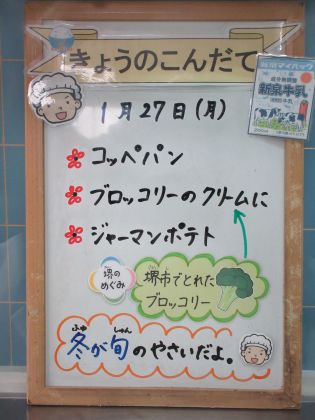 きょうのこんだて
1月27日(月)
コッペパン
ブロッコリーのクリームに
ジャーマンポテト
堺の
めぐみ
堺市でとれた
ブロッコリー
ふゆ しゅん
冬が旬のやさいだよ。
成分無調整
新泉牛乳